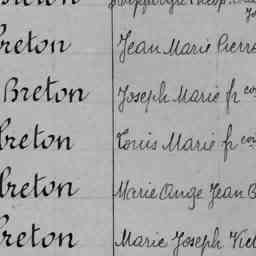 Breton Jean Marie Pierre
Breton Joseph Marie fr con
Breton Louis Marie fr con
Breton Marie Ange Jean B
Breton Marie Joseph Vict